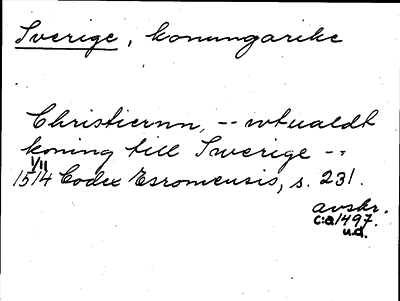 Sverige, konungarike
Christiernn, -- wtualdt
koning till Swerige --
1/11
1514 Codex Esromensis, s. 231.
avskr.
c:a 1497.
u.d.